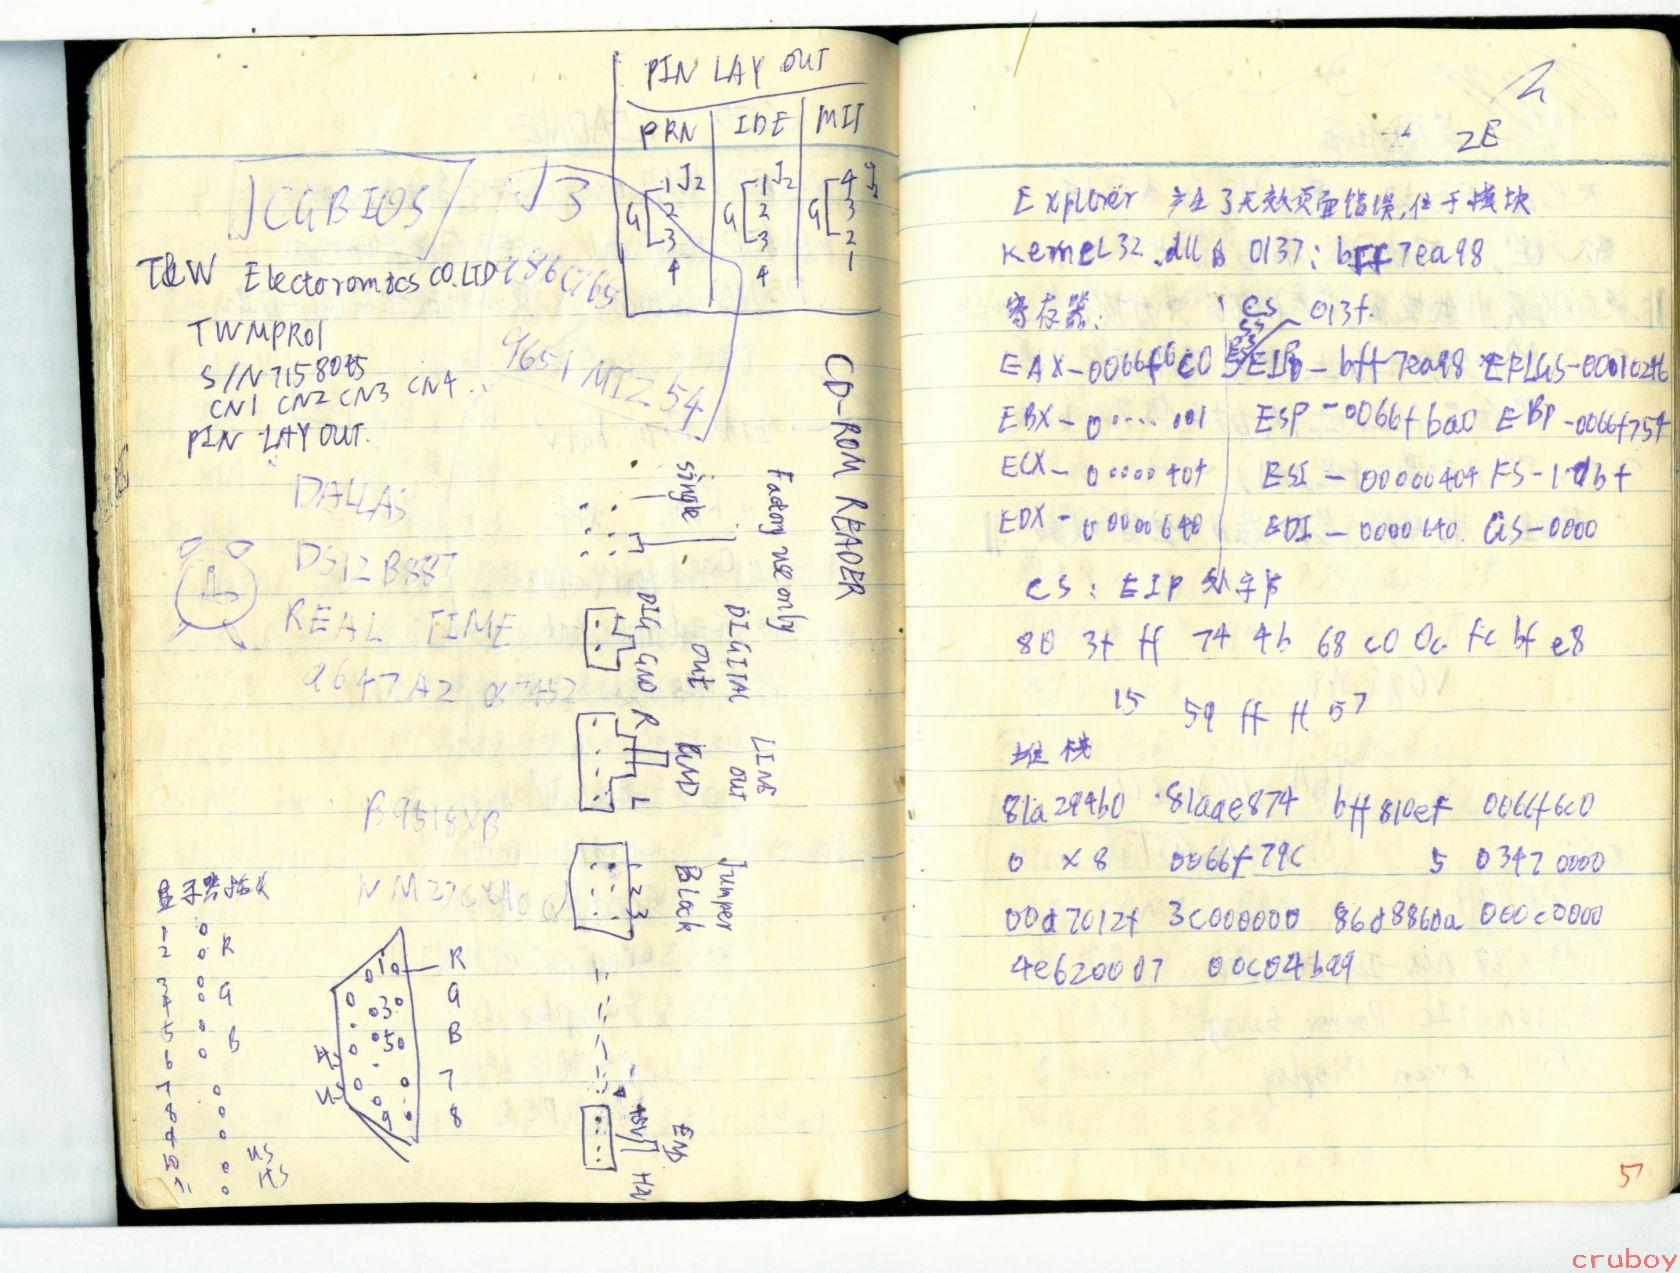 PIN LAY OUT
PRN IDE MIT
G 1 J2 2 3 4
G 1 J2 2 3 4
G 4 J2 3 2 1
JCGBIOS
√3
T&W Electoromics CO.LTD
TWMPR01
S/N7158045
CN1 CN2 CN3 CN4
PIN LAY OUT.
9651 MIZ54
DALLAS
DS12B887
REAL TIME
9647A2
CD-ROM READER
single
Factory use only
DIG GND
DIGITAL OUT
R GND L
LINE OUT
1 2 3
Jumper Block
+5V
END
1
2 R
3
4 G
5
6 B
7
8
9
10 VS
11 HS
1 R
3 G
5 B
7
9 8
2E
Explorer 产生了无效页面错误,位于模块
Kernel32.dll 的 0137:bff7ea98
寄存器:
CS 013f
EAX-0066f6c0 EIP-bff7ea98 EFLGS-00010246
EBX-0.....001 ESP-0066fba0 EBP-0066f754
ECX-0....404 ESI-00000404 FS-1dbf
EDX-00000640 EDI-0000640. GS-0000
CS:EIP 处字节
80 3f ff 74 4b 68 c0 0c fc bf e8
15 59 ff ff 57
堆栈
81a294b0 81aae874 bff810ef 0066f6c0
0 x8 0066f79c 5 03470000
00d7012f 3c000000 86d8860a 000c0000
4e620007 00c04b99
5
cruboy